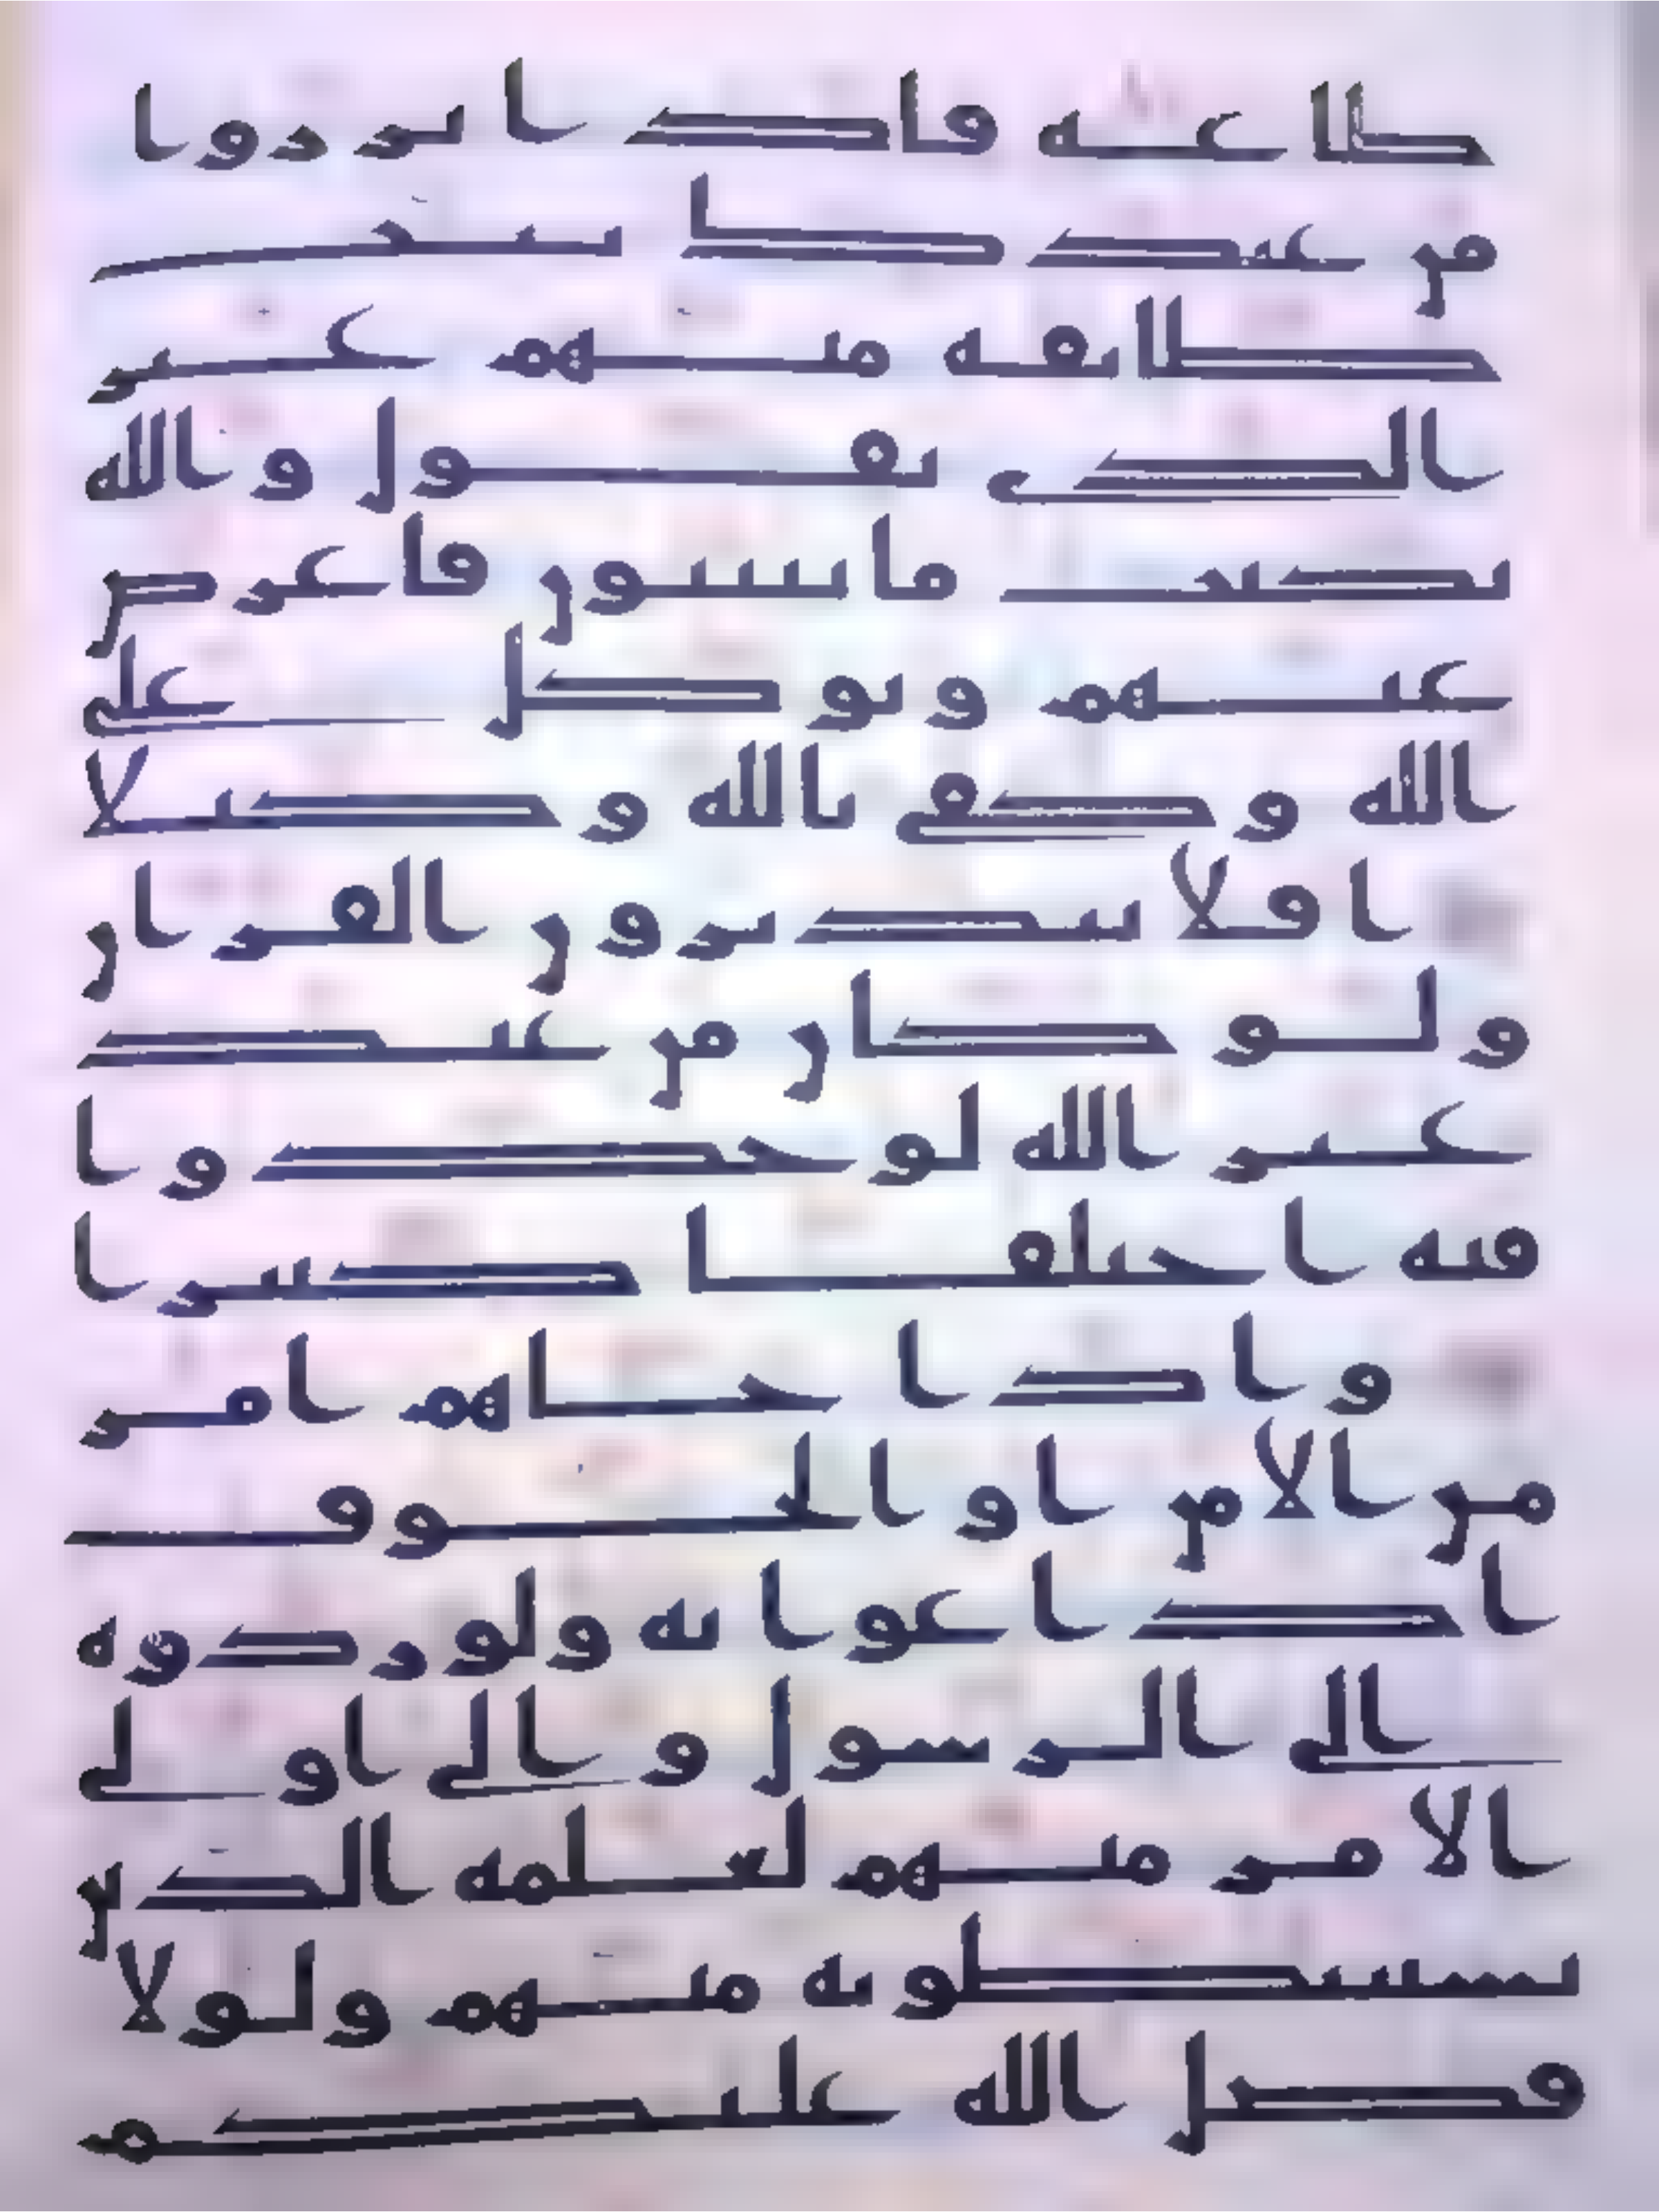 طاعه فاذا برزوا
من عندك بيت
طايفه منهم غير
الذي تقول والله
يكتب ما يبيتون فاعرض
عنهم وتوكل على
الله وكفى بالله وكيلا
افلا يتدبرون القران
ولو كان من عند
غير الله لوجدوا
فيه اختلفا كثيرا
واذا جاهم امر
من الامن او الخوف
اذاعوا به ولو ردوه
الى الرسول والى اولي
الامر منهم لعلمه الذين
يستنبطونه منهم ولولا
فضل الله عليكم